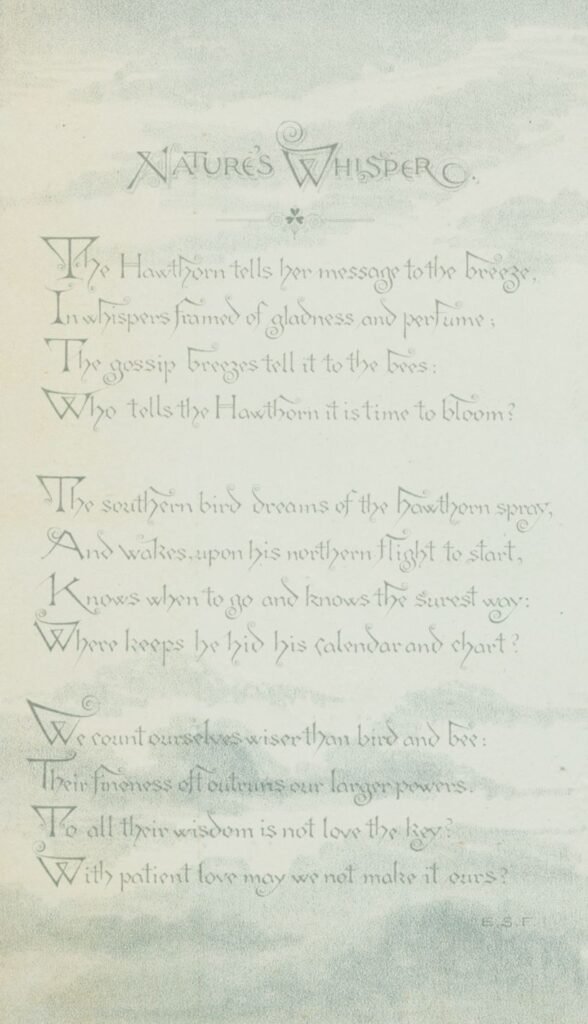 NATURE'S WHISPER.
The Hawthorn tells her message to the breeze,
In whispers framed of gladness and perfume;
The gossip breezes tell it to the bees:
Who tells the Hawthorn it is time to bloom?
The southern bird dreams of the hawthorn spray,
And wakes, upon his northern flight to start,
Knows when to go and knows the surest way:
Where keeps he hid his calendar and chart?
We count ourselves wiser than bird and bee:
Their fineness oft outruns our larger powers.
To all their wisdom is not love the key?
With patient love may we not make it ours?
E.S.F.